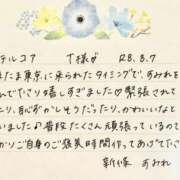 テルコア T様♂ R8.3.7
たま東京に来られたタイミングで、すみれを
んでくださり嬉しすぎました♡緊張されて
たり、恥ずかしそうだったり、かわいいなと
いました♪普段たくさん頑張っているので
かりご自身のご褒美時間作ってあげてく
新塚 すみれ